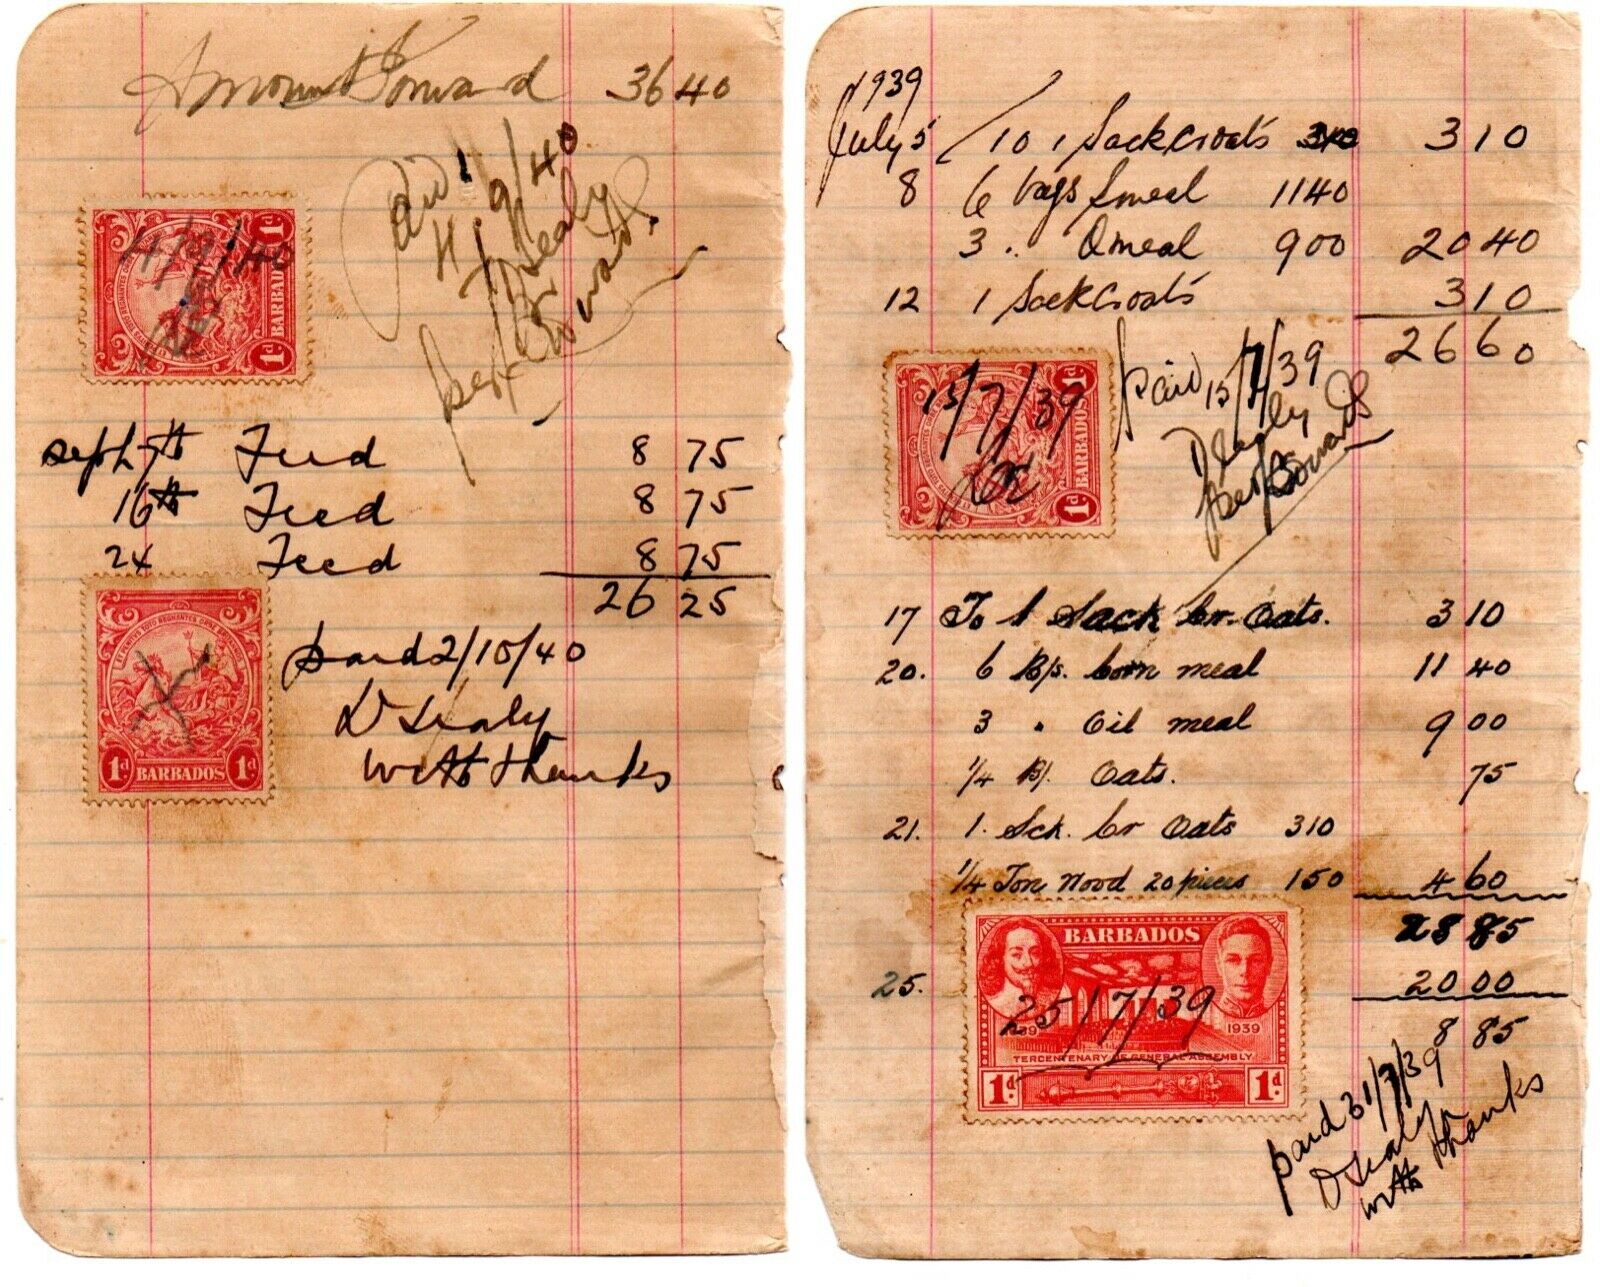 Amount Forward 36 40
Paid 11/9/40
D Sealy
per E Edwards
11/9/40
BARBADOS
1d 1d
Sept 7th Feed 8 75
16th Feed 8 75
24 Feed 8 75
26 25
1d BARBADOS 1d
paid 2/10/40
D Sealy
with thanks
1939
July 5 / 10 1 Sack Cr oats 310 3 10
8 6 bags S meal 1140
3 " O meal 900 20 40
12 1 Sack Cr oats 3 10
26 60
15/7/39
BARBADOS
1d 1d
paid 15/7/39
D Sealy
17 To 1 Sack Cr. Oats. 3 10
20. 6 B/s. Corn meal 11 40
3 " Oil meal 9 00
1/4 B/. Oats. 75
21. 1. Sck. Cr Oats 310
1/4 Ton Wood 20 pieces 150 4 60
28 85
25. 20 00
8 85
BARBADOS
25/7/39
1939
TERCENTENARY OF GENERAL ASSEMBLY
1d 1d
paid 31/7/39
D Sealy
with thanks